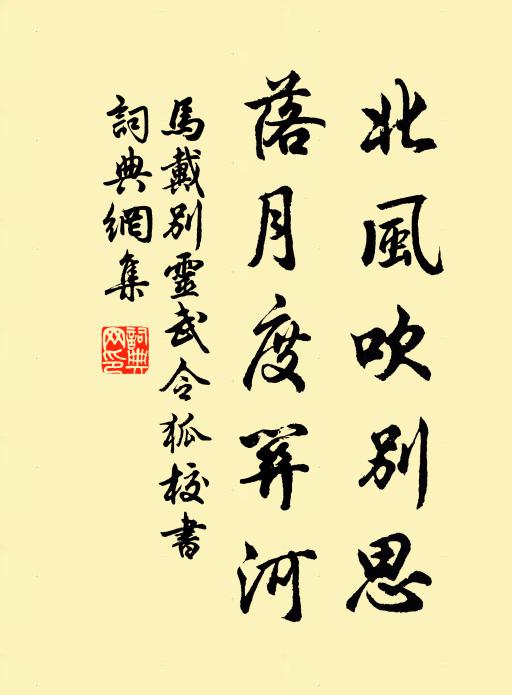 北風吹別思
落月度關河
馬戴別靈武令狐校書
詞典網集
詞典網印